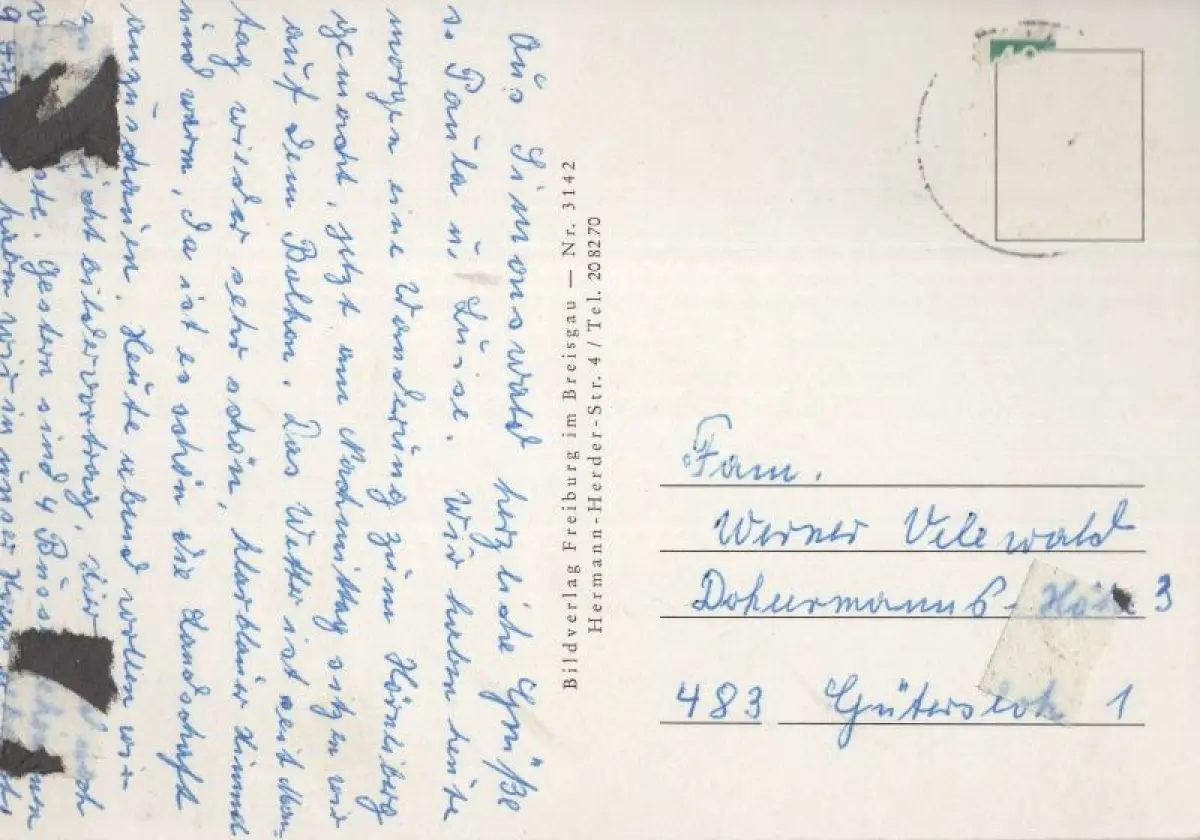 Aus Simonswald herzliche Grüße
s. Paula u. Luise. Wir haben heute
morgen eine Wanderung zum Hörnliberg
gemacht, jetzt am Nachmittag sitzen wir
auf dem Balkon. Das Wetter ist seit Mon-
tag wieder sehr schön, klarblauer Himmel
und warm, da ist es schön die Landschaft
anzuschauen. Heute abend wollen wir
Lichtbildervortrag, hier
Gestern sind 4 Busse
haben wir in unser
Bildverlag Freiburg im Breisgau — Nr. 3142
Hermann-Herder-Str. 4 / Tel. 208270
Fam.
Werner Velewald
3
483 Gütersloh 1